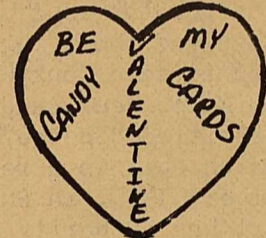 BE MY
VALENTINE
CANDY
CARDS